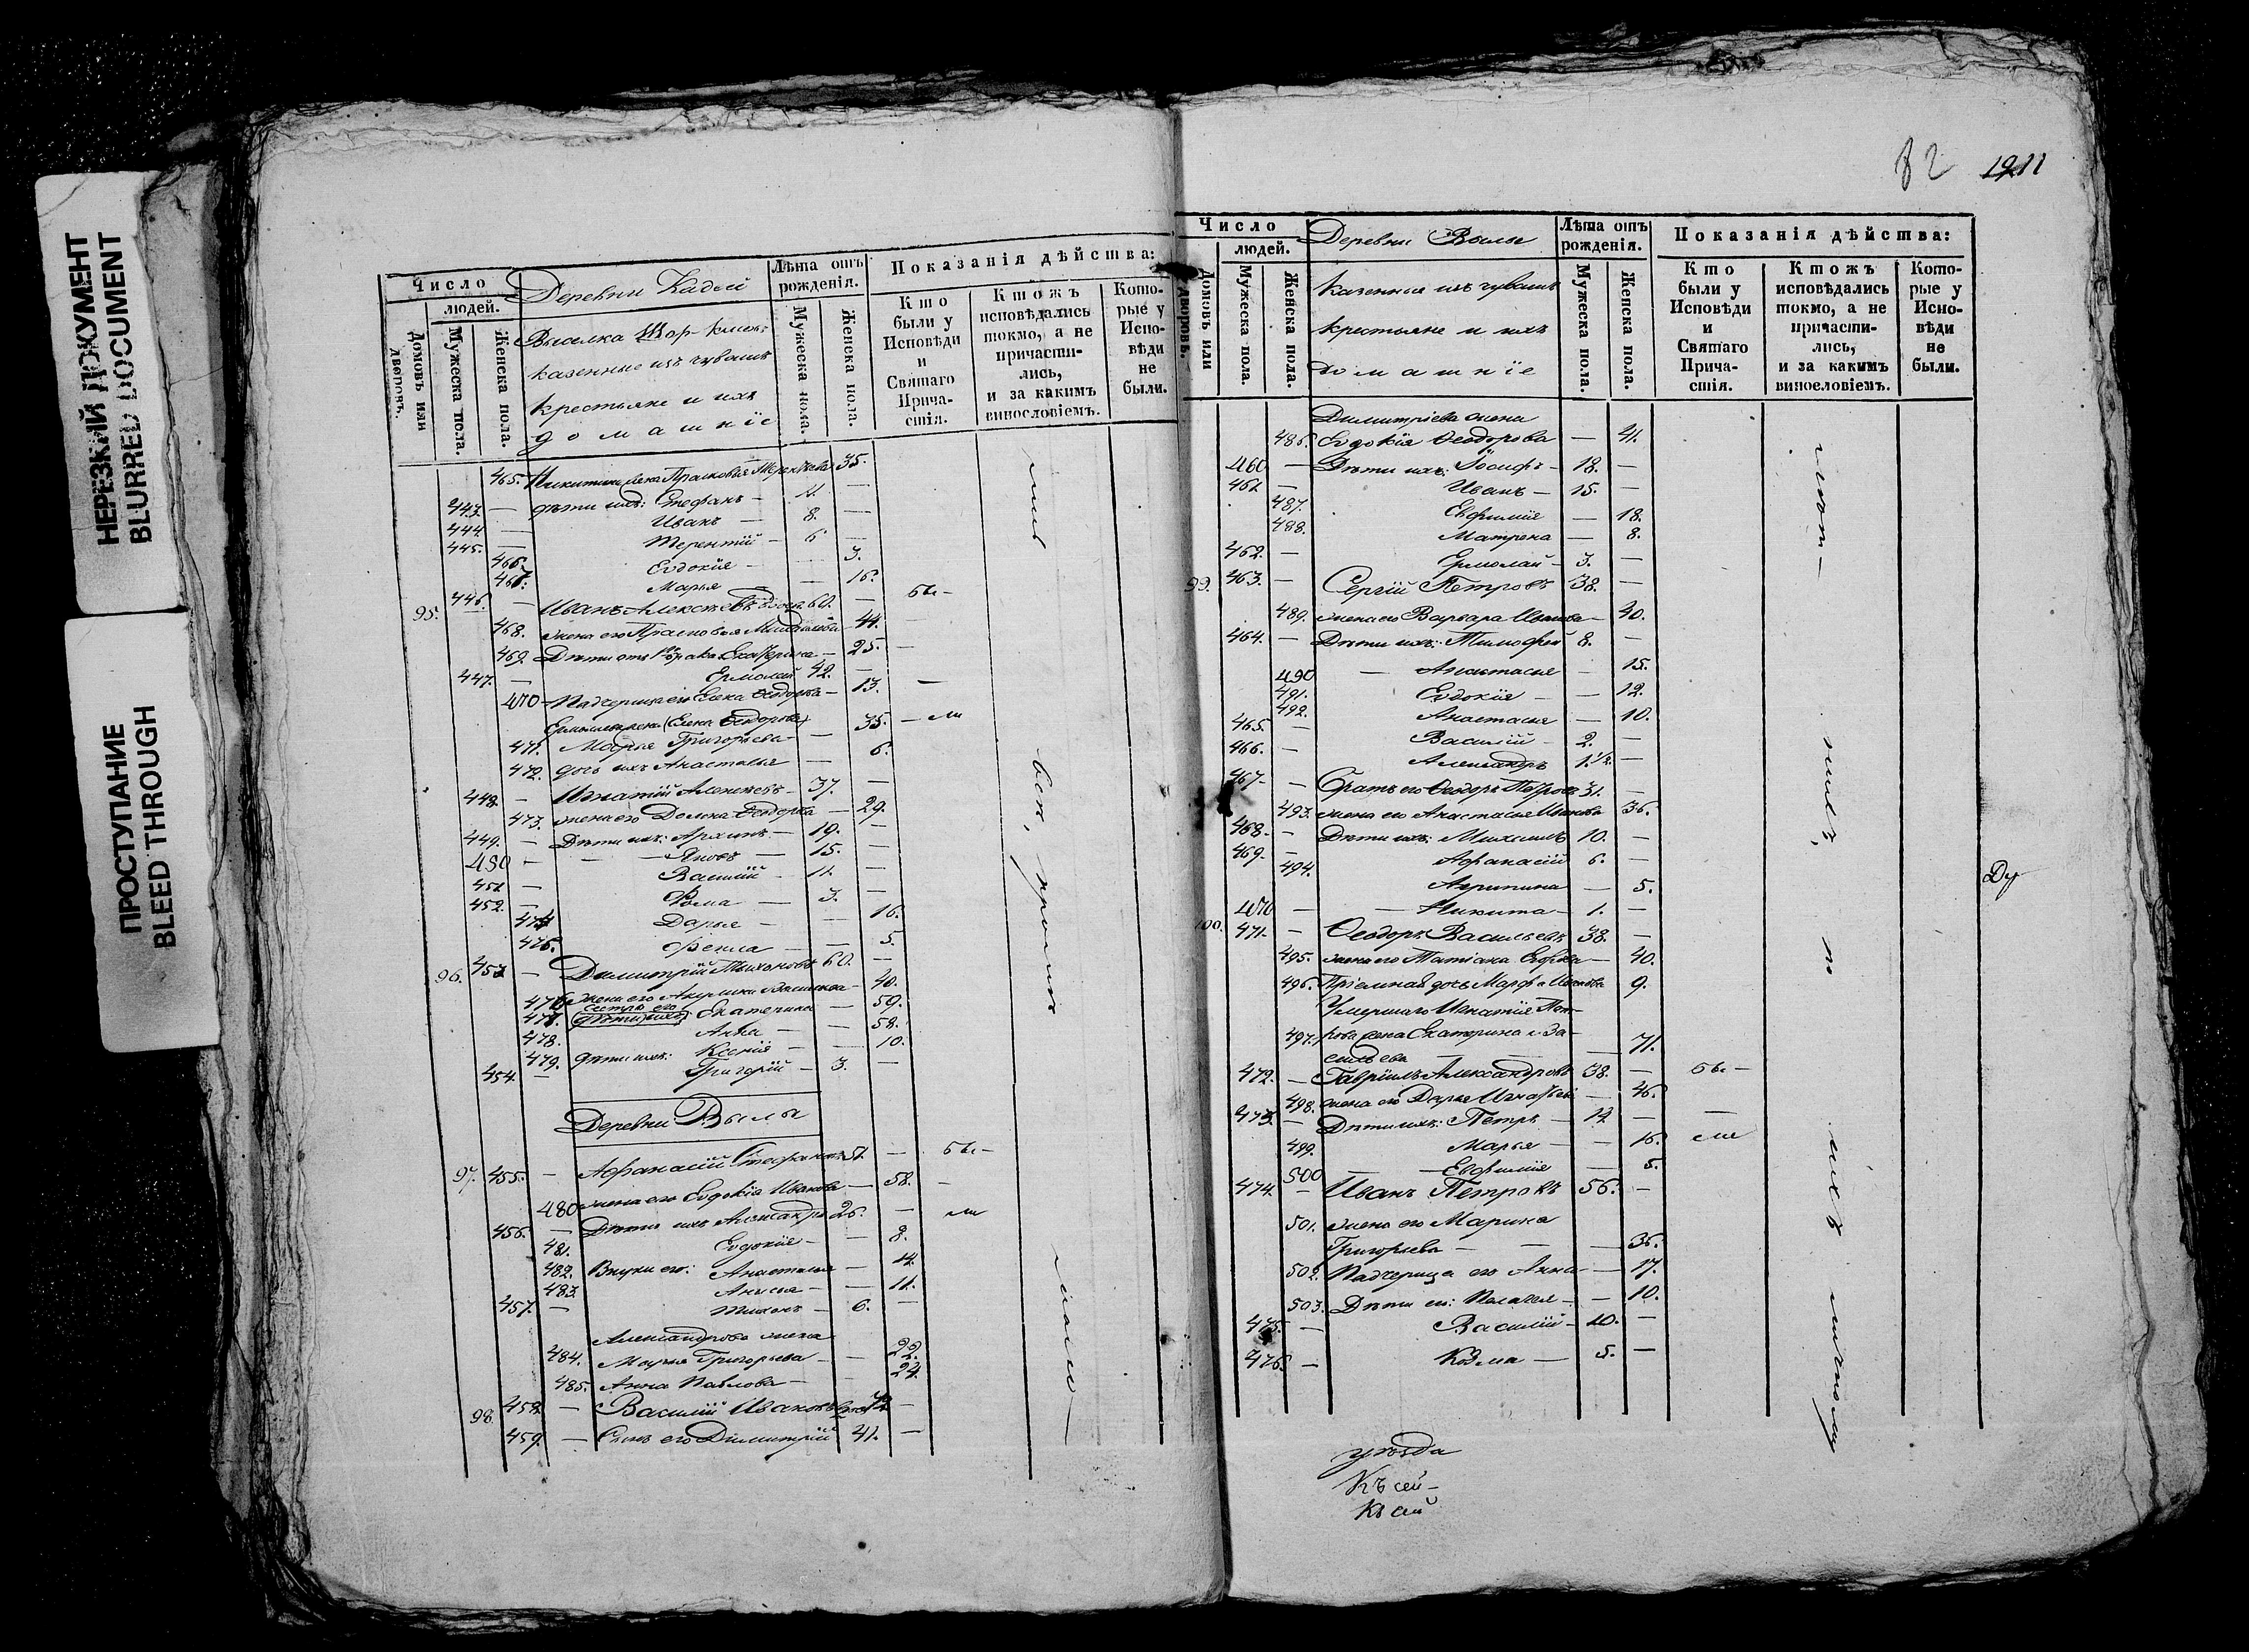 НЕРЕЗКИЙ ДОКУМЕНТ
BLURRED DOCUMENT
ПРОСТУПАНИЕ
BLEED THROUGH
Число
людей.
Домовъ или дворовъ.
Мужеска пола.
Женска пола.
Деревни Кадый
Выселка Шор-
казенные изъ чувашъ
крестьяне и ихъ
домашніе
Лѣта отъ рожденія.
Мужеска пола.
Женска пола.
Показанія дѣйства:
Кто были у Исповѣди и Святаго Причастія.
Ктожъ исповѣдались токмо, а не причастились, и за какимъ винословіемъ.
Которые у Исповѣди не были.
465. Никитина жена Прасковья Терентьева 35.
443. — дѣти ихъ: Стефанъ — 11. —
444. — Иванъ — 8. —
445. — Терентій — 6 —
466. Евдокія — 3.
467. Марья — 16.
95. 446. — Иванъ Алексѣевъ 60. — бы-
468. жена его Прасковья — 44. —
469. Дѣти отъ 1го брака Екатерина — 25. —
447. — Ермолай 42. —
470 — Падчерица его Елена Ѳеодорова — 13. —
жена (Елена Ѳеодорова) 35. — ли
471. Марья Григорьева —
472. дочь ихъ Анастасья — 6.
448. — Игнатій Алексѣевъ — 37. —
473. жена его Домна Ѳеодорова — 29.
449. — Дѣти ихъ: Архипъ — 19. —
450 — Яковъ — 15. —
451 — Василій — 11. —
452. — Ѳома — 3. —
474 Дарья — — 16.
475. Ѳекла — — 5.
96. 453 — Димитрій Тихоновъ 60. —
476 жена его Акулина — 40.
477. сестры его Екатерина — 59.
478. Анна — — 58.
479. дѣти ихъ: Ксенія — — 10.
454. — Григорій — 3. —
Деревни Вылы
97. 455. — Афанасій Стефановъ 51. — бы-
480 жена его Евдокія Иванова — 58. —
456. — Дѣти ихъ Александръ 26. — ли
481. Евдокія — — 8.
482. Внуки его: Анастасья — 14.
483. Анисья — — 11.
457. — Тихонъ — 6. —
Александрова жена
484. Марья Григорьева — — 22.
485. Анна Павлова — — 24.
98. 458. — Василій Ивановъ 72 —
459. — Сынъ его Димитрій 41. —
82 1211
Число
людей.
Домовъ или дворовъ.
Мужеска пола.
Женска пола.
Деревни Вылы
казенные изъ чувашъ
крестьяне и ихъ
домашніе
Лѣта отъ рожденія.
Мужеска пола.
Женска пола.
Показанія дѣйства:
Кто были у Исповѣди и Святаго Причастія.
Ктожъ исповѣдались токмо, а не причастились, и за какимъ винословіемъ.
Которые у Исповѣди не были.
Димитріева жена
486. Евдокія Ѳеодорова — 41.
460 — Дѣти ихъ: Іосифъ — 18. —
461 — Иванъ — 15. —
487. Евфимія — 18.
488. Матрена — 8.
462. — Ермолай — 3. —
99. 463. — Сергій Петровъ 38. —
489. жена его Варвара Иванова — 40.
464. — Дѣти ихъ: Тимофей 8. —
490 — Анастасья — 15.
491. Евдокія — — 12.
492. Анастасья — 10.
465. — Василій — 2. —
466. — Александръ 1.½ —
467 — Братъ его Ѳеодоръ Петровъ 31. —
493. жена его Анастасья Иванова 36.
468 — Дѣти ихъ: Михаилъ 10. —
469. — Афанасій 6. —
494. Агрипина — 5.
470 — Никита — 1. —
100. 471. — Ѳеодоръ Васильевъ 38. —
495. жена его Татіана Егорова — 40.
496. Пріемная дочь Марфа Иванова 9.
Умершаго Игнатія Пет-
497. рова жена Екатерина Ва-
сильева — 71.
472. — Гавріилъ Александровъ 38. — бы —
498. жена его Дарья Игнатьева — 46.
473 — Дѣти ихъ: Петръ — 12 — —
499. Марья — — 16. ли
500 Евфимія — 5.
474. — Иванъ Петровъ 56. —
501. жена его Марина
Григорьева — — — 36.
502. Падчерица его Анна — 17.
503. Дѣти ея: Пелагея — — 10.
475. — Василій — 10. —
476. — Козма — 5. —
Ду
уѣзда
Къ сей —
Къ сей